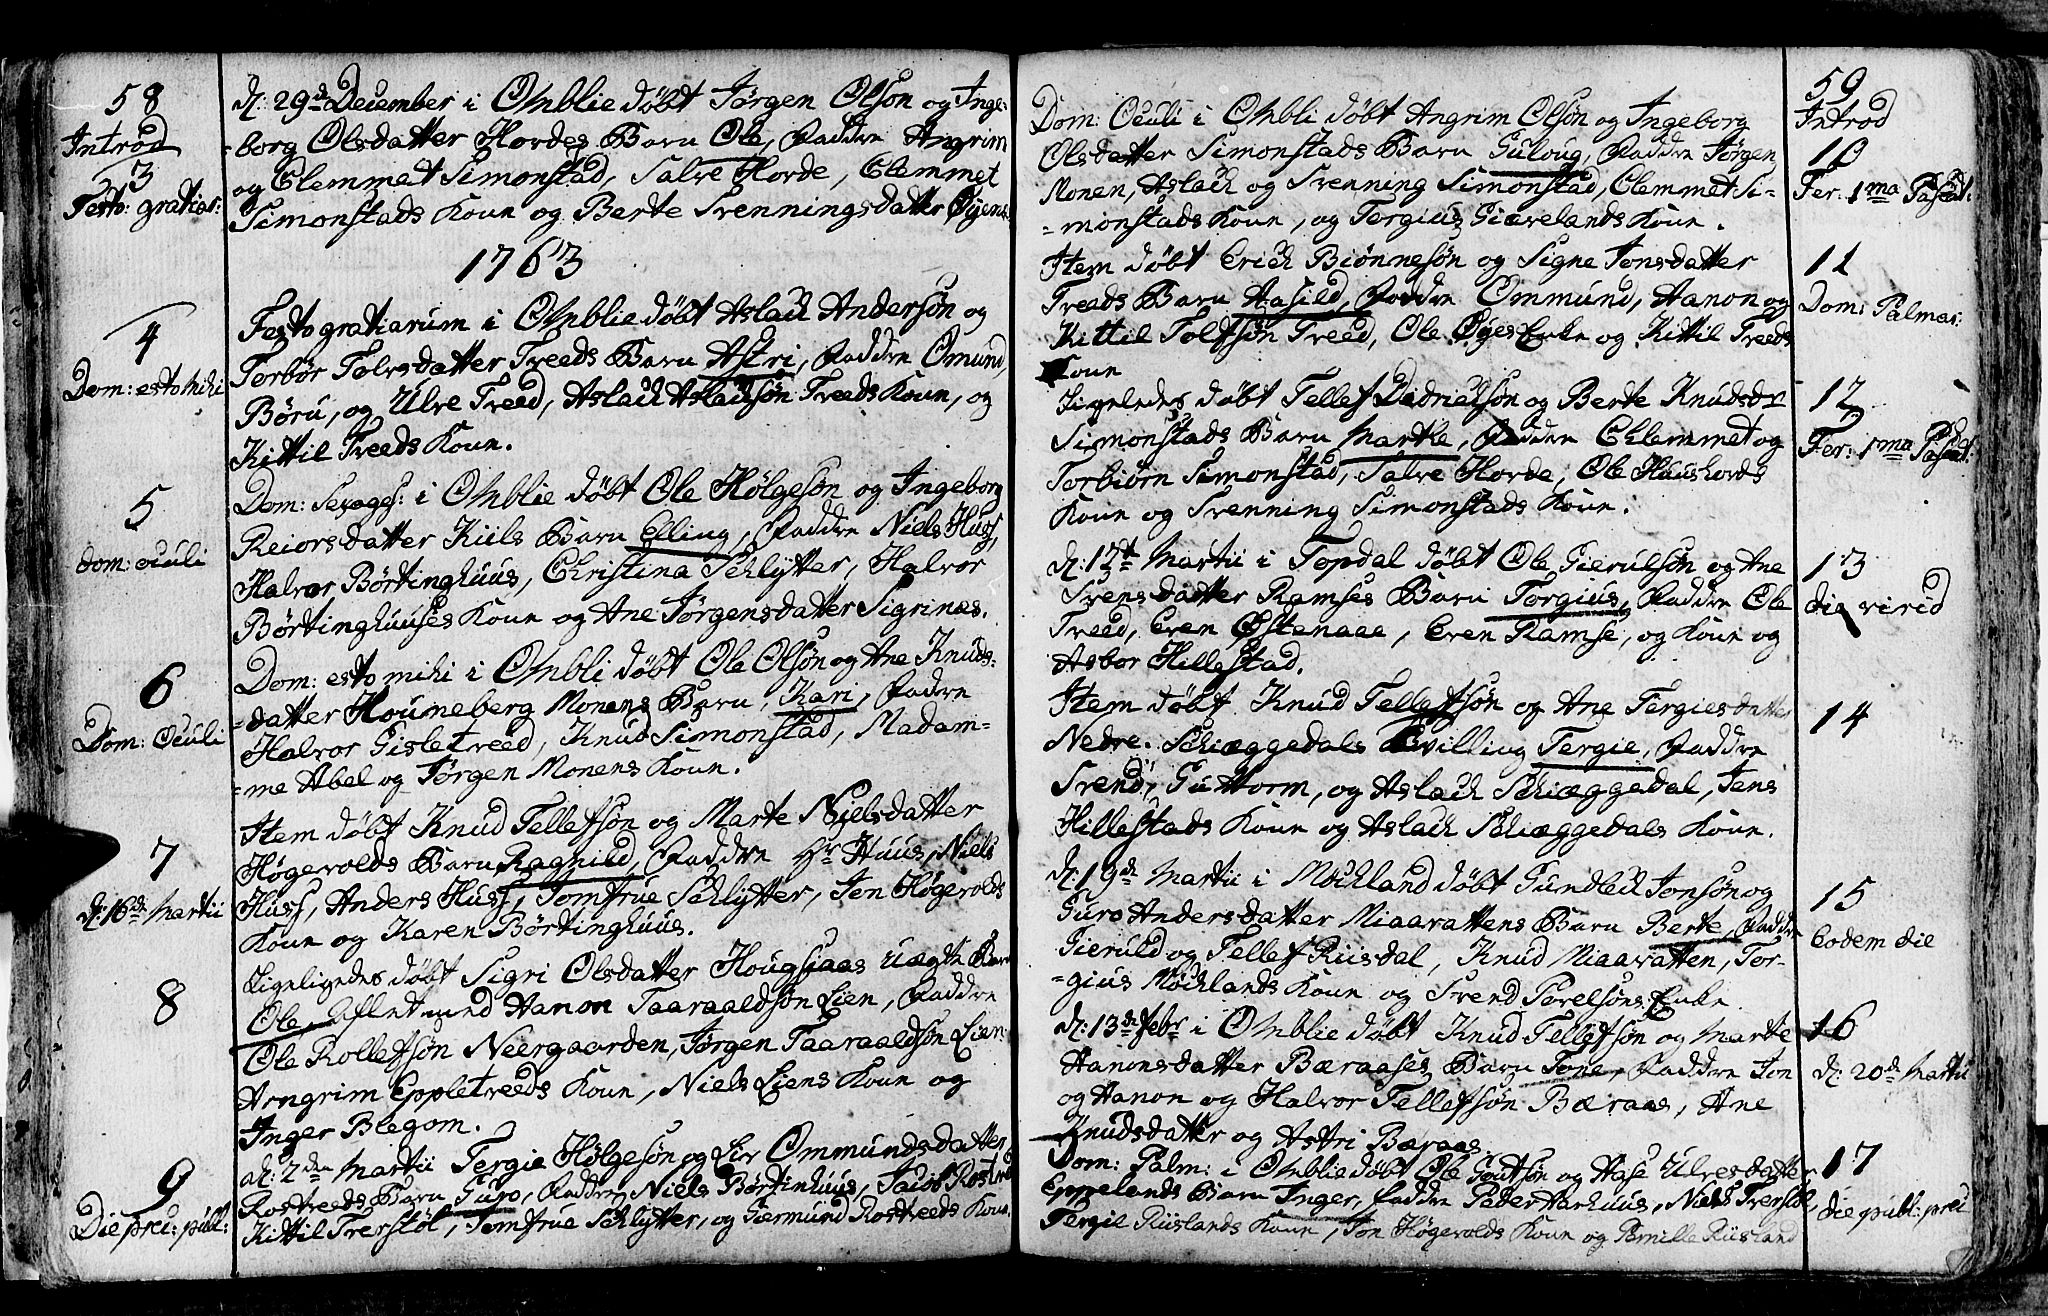 58
Introd
3
Festo: gratiar:
4
Dom: esto mihi
5
Dom: oculi
6
Dom: Oculi
7
d: 16de Martii
8
9
Die prec: publ:
d: 29de December i Omblie døbt Jørgen Olsøn og Inge-
-borg Olsdatter Hordes Barn Ole, Faddre Angrim
og Clemmet Simonstad, Salve Horde, Clemmet
Simonstads Koun og Berte Svenningsdatter Øyens
1763
Festo gratiarum i Omblie døbt Aslach Andersøn og
Torbør Tolvsdatter Treeds Barn Astri, Faddre Omund,
Børu, og Ulve Treed, Aslach Aslachsøn Treeds Koun, og
Kittil Treeds Koun.
Dom: Sexages: i Omblie døbt Ole Hølgesøn og Ingeborg
Reiorsdatter Kiils Barn Elling, Faddre Niels Huss,
Halvor Børtinghuus, Christina Schlytter, Halvor
Børtinghuuses Koun og Ane Jørgensdatter Sigrinæs.
Dom: esto mihi i Ombli døbt Ole Olsøn og Ane Knuds-
-datter Houmeberg Monens Barn, Kari, Faddre
Halvor Gisletreed, Knud Simonstad, Madam-
-me Abel og Jørgen Monens Koun.
Item døbt Knud Tellefsøn og Marte Nielsdatter
Høgevolds Barn Ragnild, Faddre Hr Huus, Niels
Huss, Anders Huss, Jomfrue Schlytter, Jen Høgevolds
Koun og Karen Børtinghuus.
Ligeligedes døbt Sigri Olsdatter Hougsjaas uægte Barn
Ole, Aflet med Hanon Taaraaldsøn Lien, Faddre
Ole Rollefsøn Neergaarden, Jørgen Taaraaldsøn Lien
Arngrim Eppletreeds Koun, Niels Liens Koun og
Inger Blegom.
d: 2den Martii Tergie Hølgesøn og Liv Ommundsdatter
Rostreeds Barn Guro, Faddre Niels Børtinhuus, Jacob Rostred
Kittil Trevstøl, Jomfrue Schlytter, og Giermund Rostreeds Koun.
Dom: Oculi i Ombli døbt Angrim Olsøn og Ingeborg
Olsdatter Simonstads Barn Guloug, Faddre Jørgen
Monen, Aslach og Svenning Simonstad, Clemmet Si-
-monstads Koun, og Tergius Giævelands Koun.
Item døbt Erich Biønnesøn og Signe Jonsdatter
Treeds Barn Aasild, Faddre Ommund, Aanon og
Kittil Tolfsøn Treed, Ole Øyes Enke og Kittil Treeds
Koun
Ligeledes døbt Tellef Didrichsøn og Berte Knudsdr
Simonstads Barn Marthe, Faddre Chlemmet og
Torbiørn Simonstad, Salve Horde, Ole Huushords
Koun og Svenning Simonstads Koun.
d: 17t Martii i Topdal døbt Ole Gierulsøn og Ane
Svensdatter Ramses Barn Torgius, Faddre Ole
Treed, Even Østenaae, Even Ramse, og Koun og
Asbor Hillestad.
Item døbt Knud Tellefsøn og Ane Tergiesdatter
Nedre Schæggedals Tvilling Tergie, Faddre
Svend, Guttorm, og Aslach Schiæggedal, Jens
Hillestads Koun og Aslach Schiæggedals Koun.
d: 19de Martii i Mochland døbt Gundlech Jonsøn og
Guro Andersdatter Miaavattens Barn Berte, Faddre
Gieruld og Tellef Riisdal, Knud Miaavatten, Tor-
-gius Mochlands Koun og Svend Torelsøns Enke
d: 13de febr i Omblie døbt Knud Tellefsøn og Marte
Hanonsdatter Bæraases Barn Tone, Faddre Jon
og Hanon og Halvor Tellefsøn Bæraas, Ane
Knudsdatter og Astri Bæraas.
Dom: Palm: i Omblie døbt Ole Goutsøn og Aase Ulvesdatter
Eppelands Barn Inger, Faddre Peder Aarhuus, Niels Trevstøl,
Tergie Riislands Koun, Jon Høgevolds Koun og Pernille Riisland
59
Introd
10
Fer: 1ma Pasch:
11
Dom: Palmar:
12
Fer: 1ma Pasch:
13
die virid
14
15
eodem die
16
d: 20de Martii
17
die publ: prec